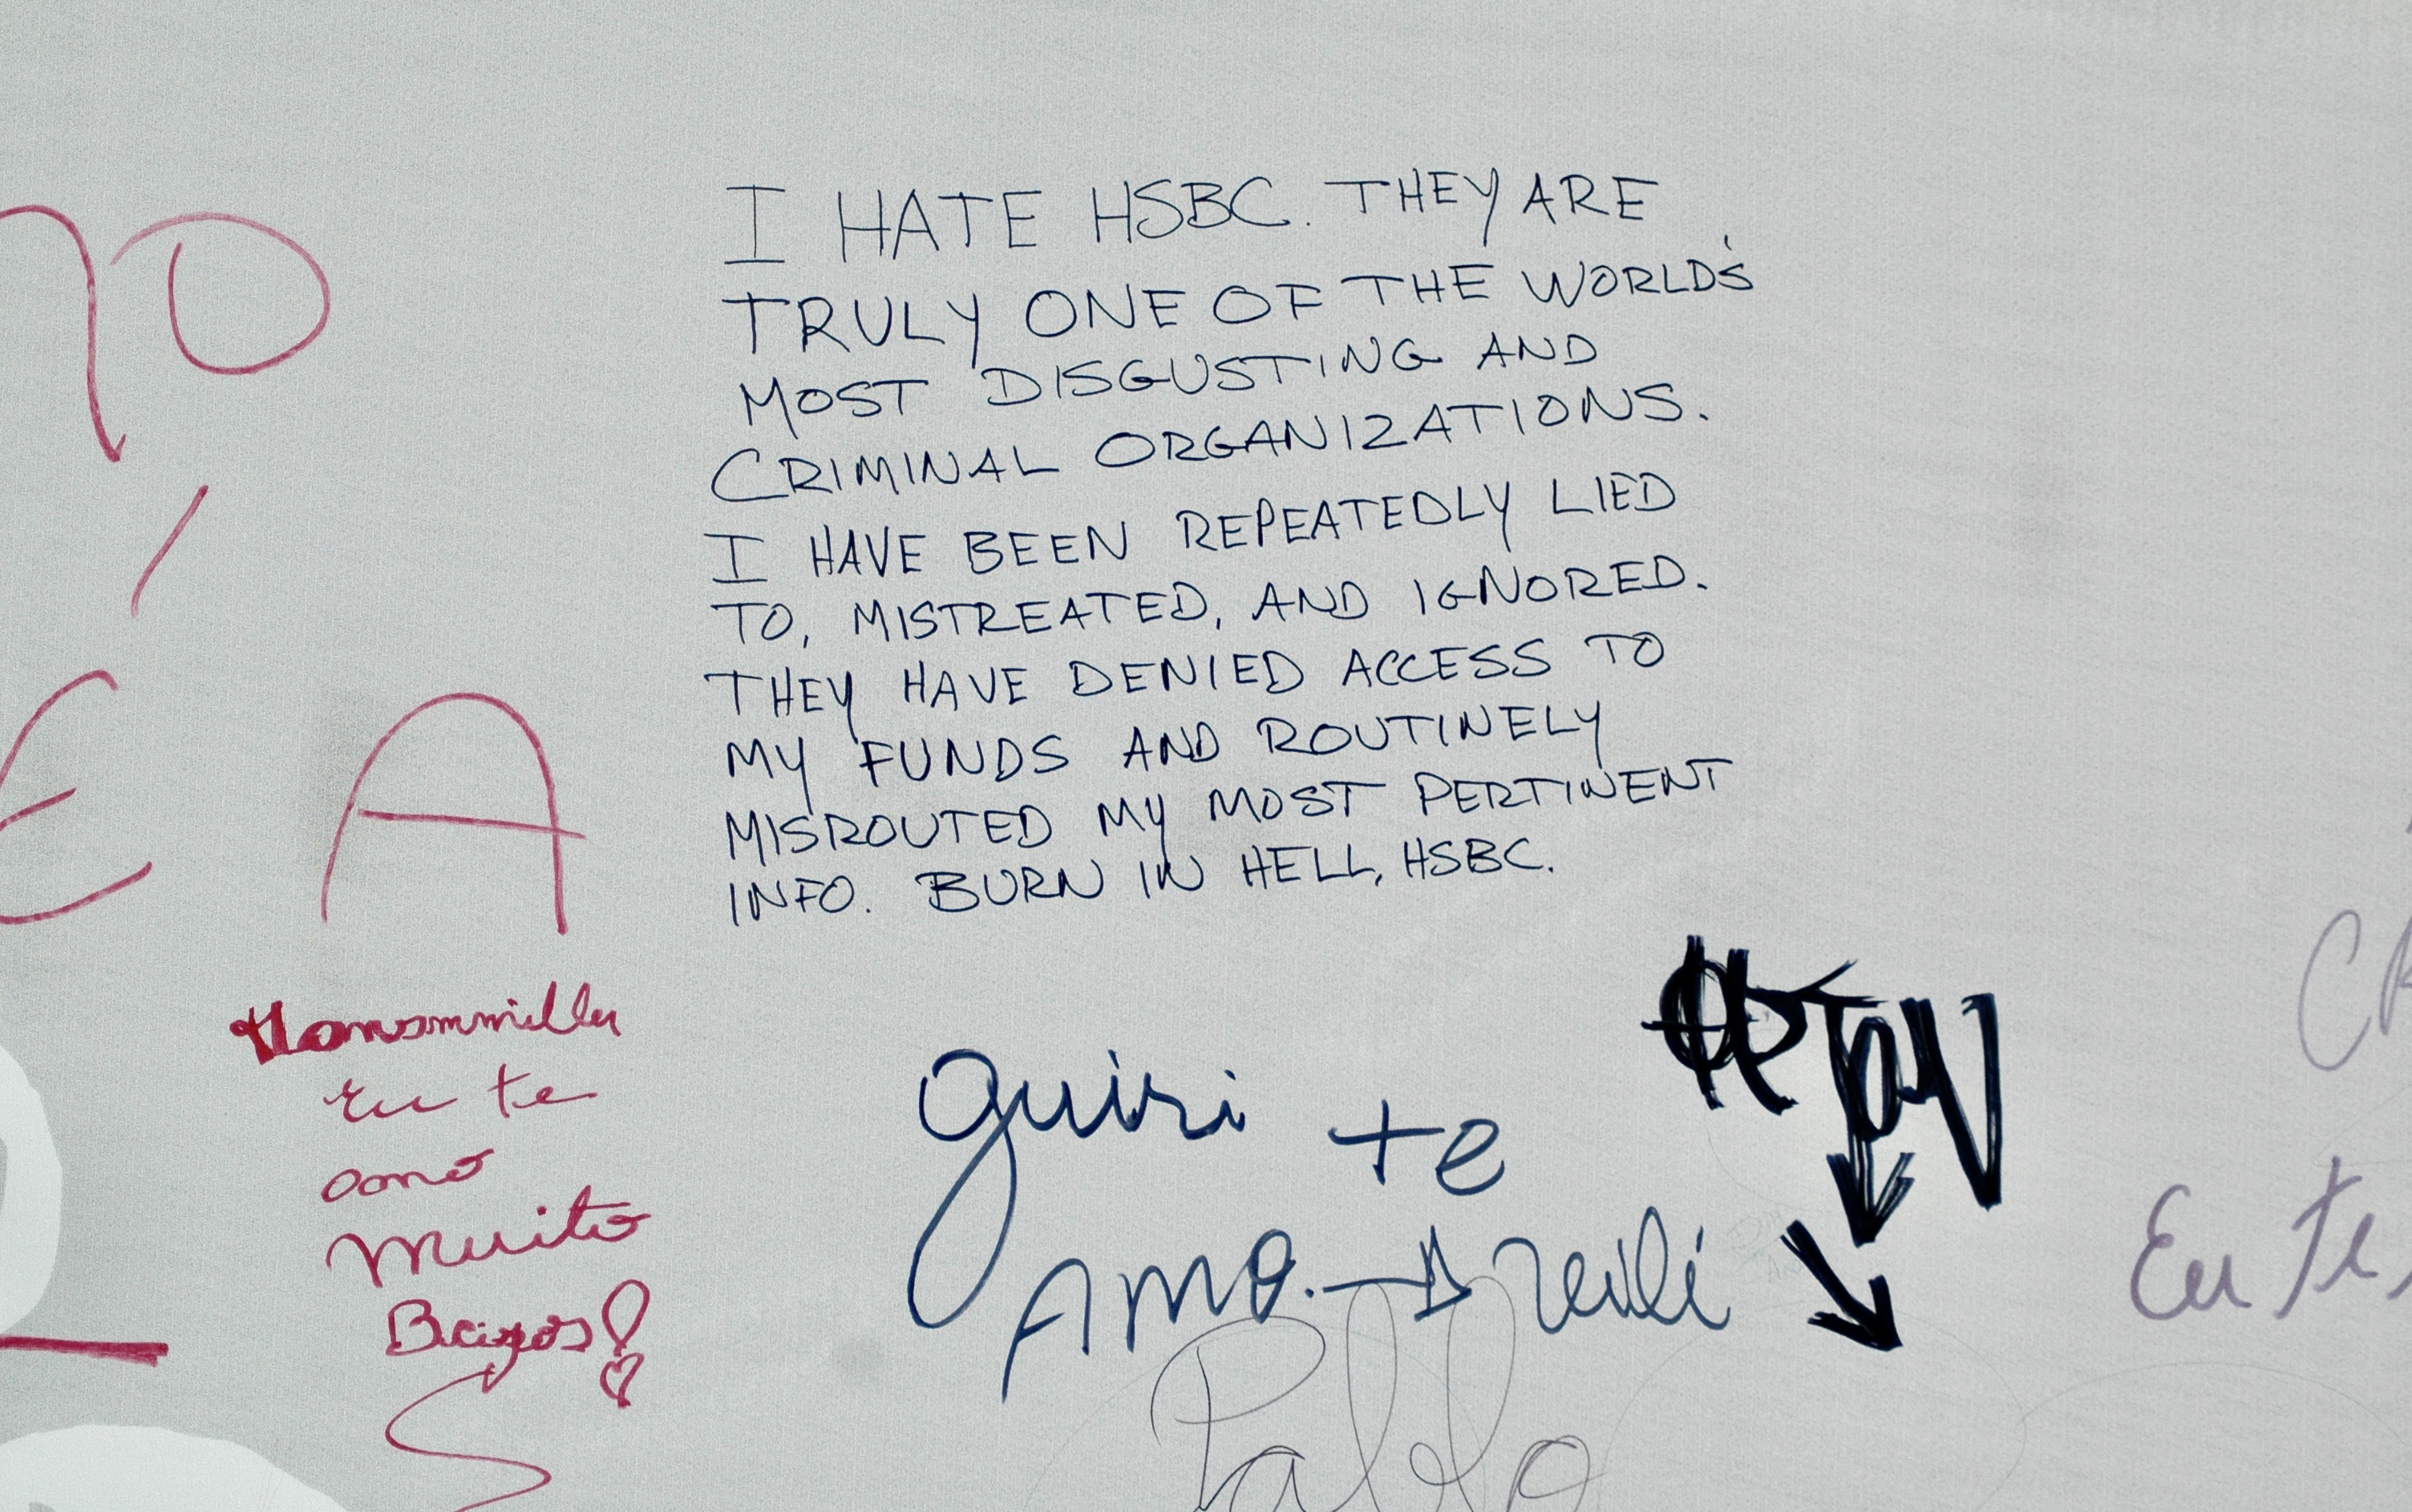 I HATE HSBC. THEY ARE
TRULY ONE OF THE WORLD'S
MOST DISGUSTING AND
CRIMINAL ORGANIZATIONS.
I HAVE BEEN REPEATEDLY LIED
TO, MISTREATED, AND IGNORED.
THEY HAVE DENIED ACCESS TO
MY FUNDS AND ROUTINELY
MISROUTED MY MOST PERTINENT
INFO. BURN IN HELL, HSBC.
E A
eu te
amo
Muito
Beijos!
quiri te
AMO.
Pablo
Eu te